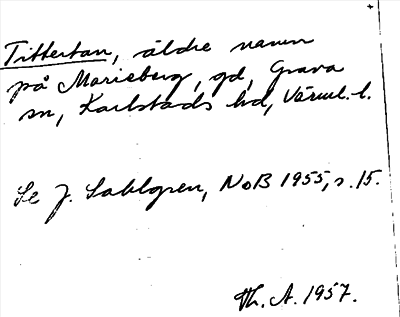 Tittertan, äldre namn
på Marieberg, gd, Grava
sn, Karlstads hd, Värml. l.
Se J. Sahlgren, NoB 1955, s. 15.
Th. A. 1957.